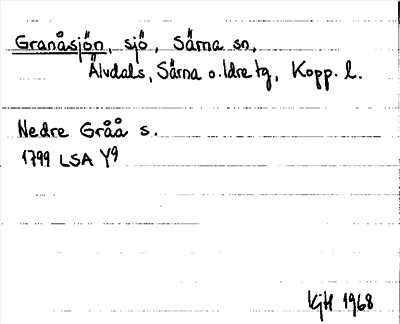 Granåsjön, sjö, Särna sn,
Älvdals, Särna o. Idre tg, Kopp. l.
Nedre Gråå s.
1799 LSA Y9
KjH 1968